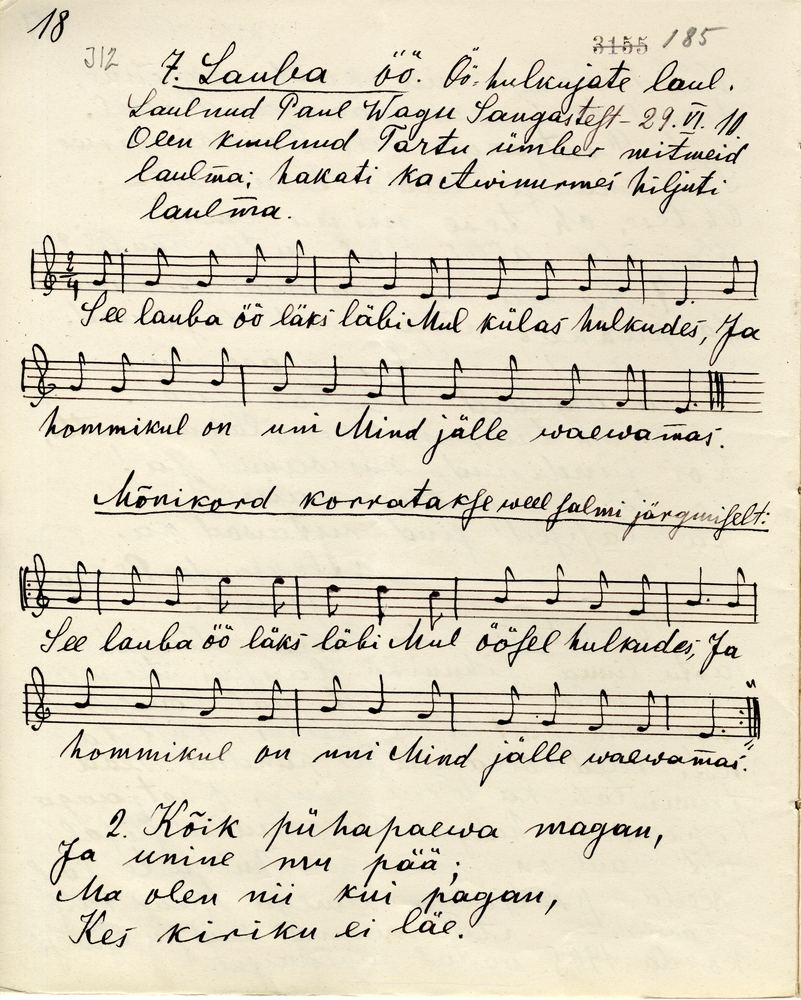 18
312
3155 185
7. Lauba öö. Öö-hulkujate laul.
Laulnud Paul Wagu Sangastest - 29. VI. 10
Olen kuulnud Tartu ümber mitmeid
laulm̄a; hakati ka Awinurmes hiljuti
laulm̄a.
2/4
See lauba öö läks läbi Mul külas hulkudes, Ja
hommikul on uni Mind jälle waewam̄as.
Mõnikord korratakse weel salmi järgmiselt:
See lauba öö läks läbi Mul öösel hulkudes, Ja
hommikul on uni Mind jälle waewam̄as.
2. Kõik pühapaewa magan,
Ja unine mu pää;
Ma olen nii kui pagan,
Kes kiriku ei läe.